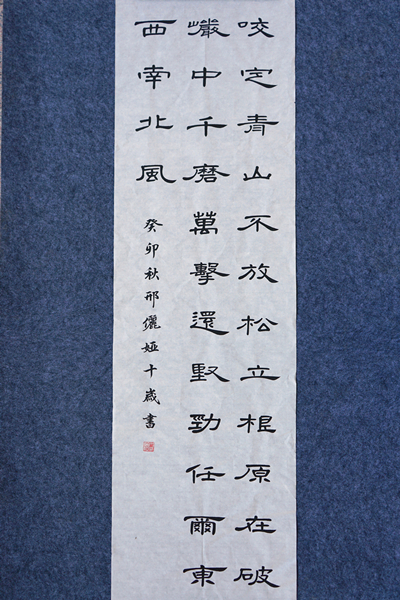 咬定青山不放松立根原在破
巖中千磨萬擊還堅勁任爾東
西南北風
癸卯秋邢儷婭十歲書